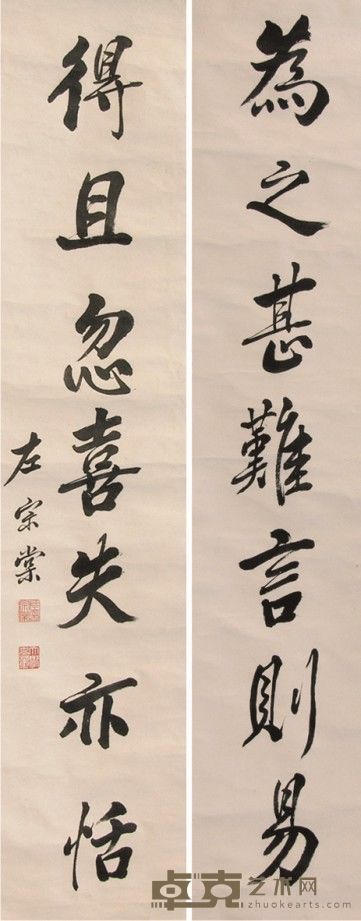 為之甚難言則易
得且忽喜失亦恬
左宗棠
卓克艺术网
zhuokearts.com